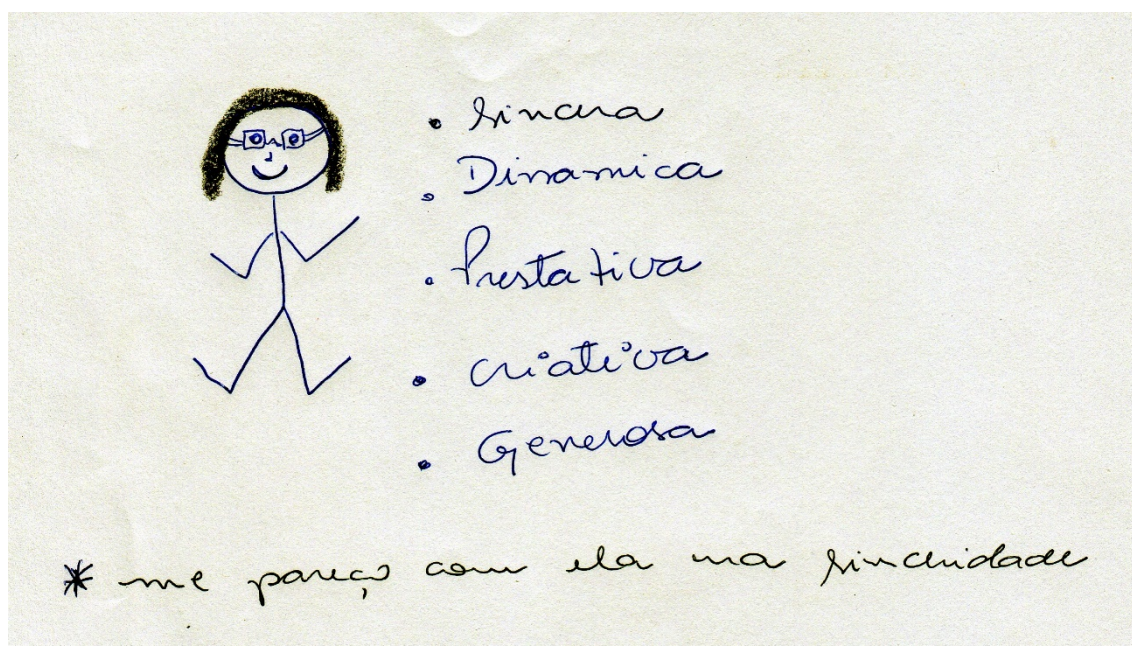 • Sincera
• Dinamica
• Prestativa
• criativa
• Generosa
* me pareço com ela na sinceridade